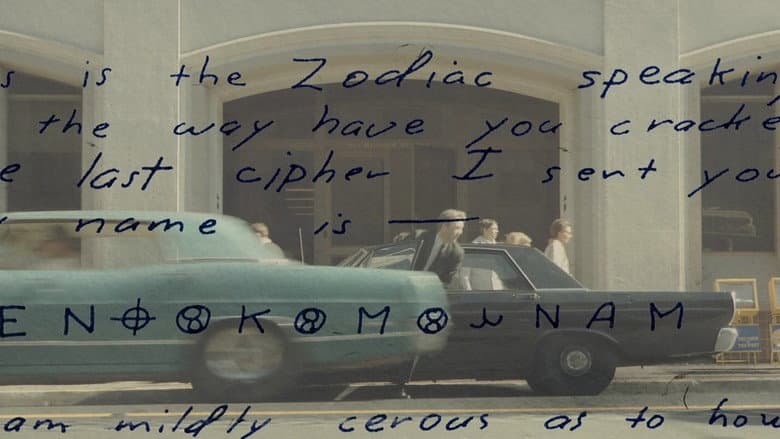 s is the Zodiac speakin
the way have you cracke
e last cipher I sent you
name is —
E N ⌖ ⊗ K ⊗ M ⊗ ⅄ N A M
am mildly cerous as to how